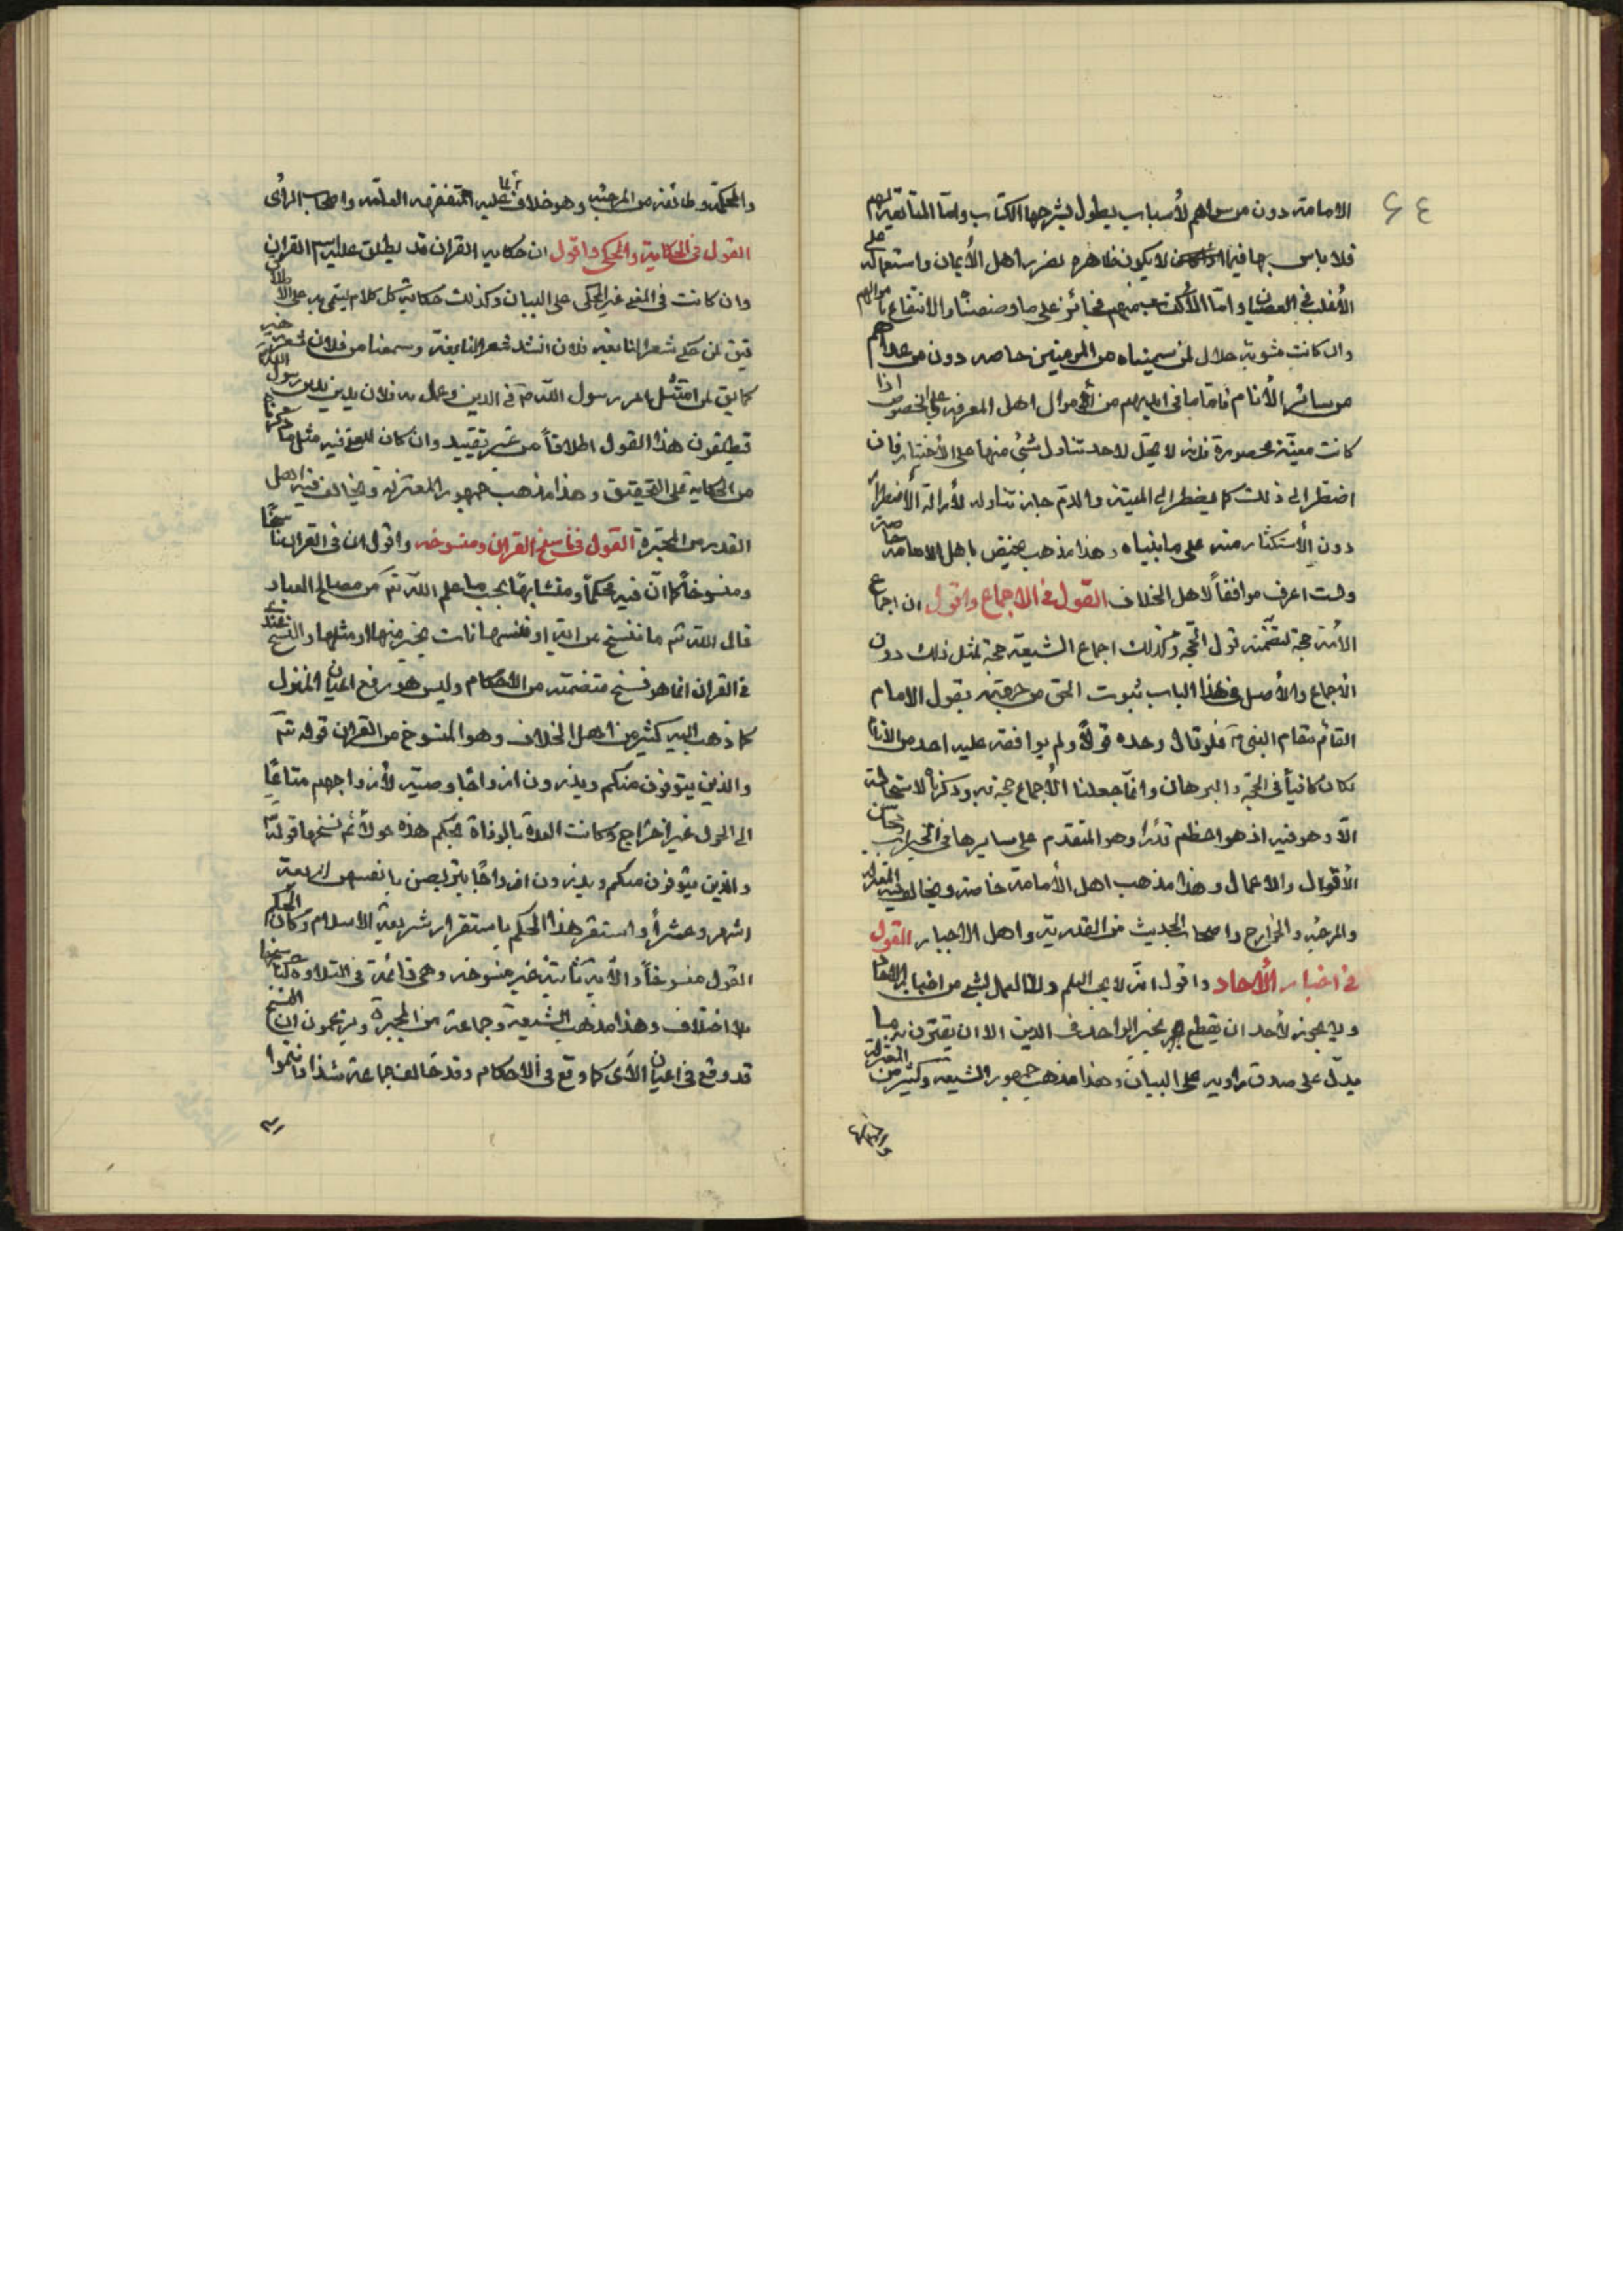 ٦٤
الامامة دون من سواهم لأسباب يطول بشرحها الكتاب واما المتابعة لهم
فلا باس بها فيما لا يكون ظاهره تضرر اهل الأيمان واستعماله على
الأغلب في العصيان واما الأكتساب منهم فجائز على ما وصفناه والانتفاع باموالهم
وان كانت مشوبة حلال لمن سميناه من المومنين خاصه دون من عداهم
من سائر الأنام فاما ما في ايديهم من أموال اهل المعرفه على الخصوص اذا
كانت معينة محصورة فانه لا يحل لاحد تناول شئ منها على الأختيار فان
اضطر الى ذلك كما يضطر الى الميتة والدم جاز تناوله لأزالة الأضطرار
دون الأستكثار منه على ما بيناه وهذا مذهب يختص باهل الامامة خاصة
ولست اعرف موافقاً لاهل الخلاف القول في الاجماع واقول ان اجماع
الأمة حجة لتضمنه قول الحجة وكذلك اجماع الشيعة حجة لمثل ذلك دون
الأجماع والأصل في هذا الباب ثبوت الحق من جهته بقول الامام
القائم مقام النبي ص فلو قال وحده قولاً ولم يوافقه عليه احد من الأنام
لكان كافياً في الحجة والبرهان وانما جعلنا الأجماع حجة به وذكرناه لاستحالة
الا وهو فيه اذ هو اعظم قدراً وهو المتقدم على سايرها في الخيرات ومحاسن
الأقوال والاعمال وهذا مذهب اهل الأمامة خاصة ويخالف فيه المعتزلة
والمرجئه والخوارج واصحاب الحديث من القدرية واهل الاجبار القول
في اخبار الأحاد واقول انه لا يجب العلم ولا العمل بشئ من اخبار الاحاد
ولا يجوز لأحد ان يقطع بخبر الواحد في الدين الا ان يقترن به ما
يدل على صدق راويه على البيان وهذا مذهب جمهور الشيعه وكثير من المعتزلة
والمحكمة
والمحكمة وطائفة من المرجئه وهو خلاف لما عليه المتفقهة العامة واصحاب الرأى
القول في الحكاية والمحكي واقول ان حكايه القران قد يطلق عليه اسم القران
وان كانت في المعنى غير المحكى على البيان وكذلك حكاية كل كلام يسمى به على الاطلاق
فيق لمن حكى شعر النابغه فلان انشد شعر النابغة وسمعنا من فلان شعر
كما يق لمن امتثل امر رسول الله ص في الدين وعمل به فلان يدين بدين رسول الله ص
فيطلقون هذا القول اطلاقاً من غير تقييد وان كان المعنى فيه مثل ما ذكرناه
من الحكاية على التحقيق وهذا مذهب جمهور المعتزلة ويخالف فيه اهل
القدر من المجبرة القول في ناسخ القران ومنسوخه واقول ان في القران ناسخاً
ومنسوخاً كما ان فيه محكماً ومتشابهاً بحسب ما علم الله تعَ من مصالح العباد
قال الله تع ما ننسخ من اية او ننسها نات بخير منها او مثلها والنسخ عندي
في القران انما هو نسخ متضمنه من الاحكام وليس هو رفع اعيان المنزل
كما ذهب اليه كثير من اهل الخلاف وهو المنسوخ من القران قوله تعَ
والذين يتوفون منكم ويذرون ازواجًا وصية لأزواجهم متاعًا
الى الحول غير اخراج وكانت العدة بالوفاة بحكم هذه حولاً ثم نسخها قوله تع
والذين يتوفون منكم ويذرون ازواجًا يتربصن بانفسهن اربعة
اشهر وعشراً واستقر هذا الحكم باستقرار شريعة الاسلام وكان الحكم
القول منسوخاً والأية ثابتة غير منسوخه وهي قائمة في التلاوة كناسخها
بلا اختلاف وهذا مذهب الشيعة وجماعة من المجبرة ويزعمون ان النسخ
قد وقع في اعيان الآى كما وقع في الاحكام وقد خالف جماعة شذاذ انتموا